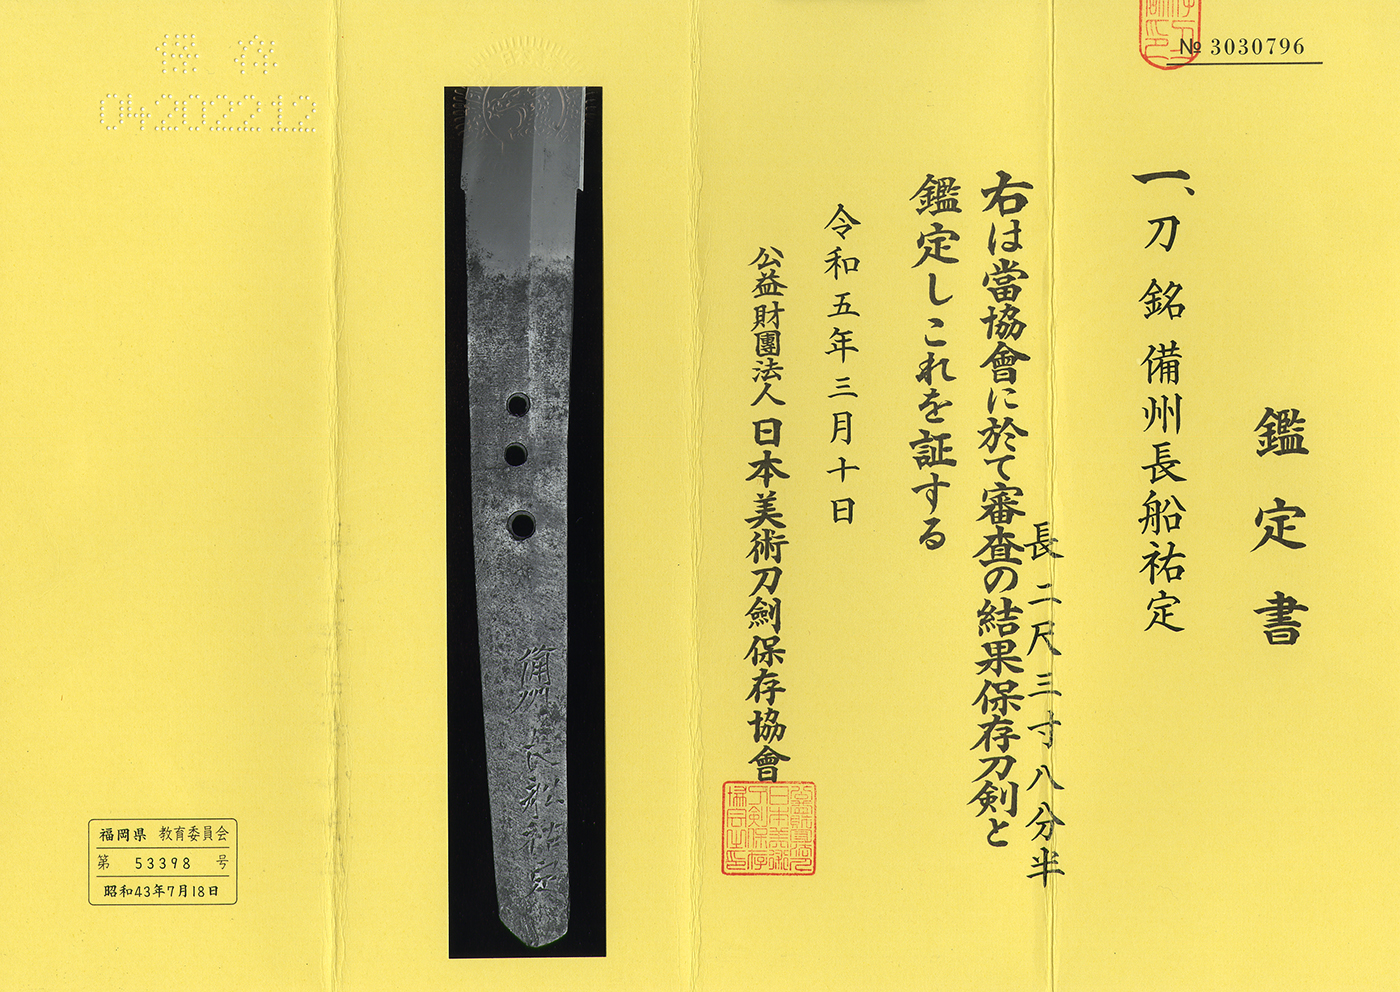 № 3030796
鑑定書
一、刀 銘 備州長船祐定
長二尺三寸八分半
右は當協會に於て審査の結果保存刀剣と
鑑定しこれを証する
令和五年三月十日
公益財團法人 日本美術刀劍保存協會
備州長船祐定
保存
04202212
福岡県 教育委員会
第 53398 号
昭和43年7月18日